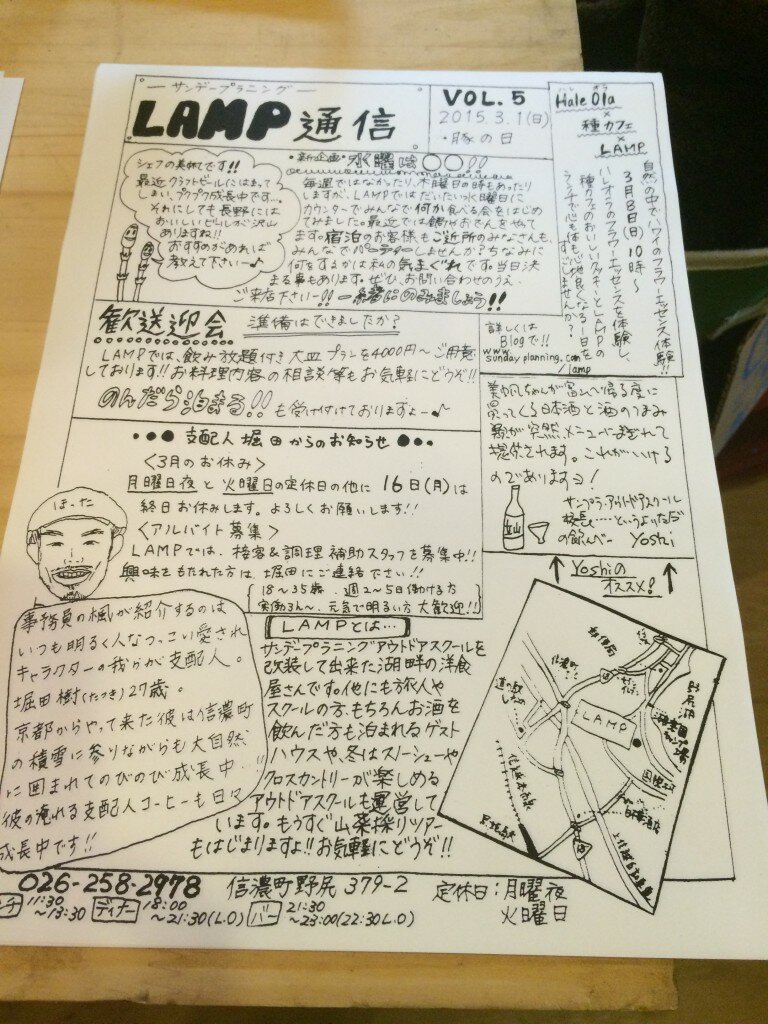 サンデープラニング
LAMP通信
VOL.5
2015.3.1(日)
・豚の日
Hale Ola
ハレ オラ
×
種カフェ
×
LAMP
自然の中でハワイのフラワーエッセンス体験!!
3月8日(日)10時～
ハレオラのフラワーエッセンスを体験し、
種カフェのおいしいクッキーとLAMPの
ランチで心も体も心地良くなる1日を
すごしませんか？
詳しくは
Blogで!!
www.
sundayplanning.com
/lamp
シェフの美帆です!!
最近クラフトビールにはまって
しまい、プクプク成長中です…
それにしても長野には
おいしいビールが沢山
ありますね!!
おすすめがあれば
教えて下さいー♪
・新企画・水曜は〇〇!!
毎週ではなかったり、木曜日の時もあったり
しますが、LAMPではだいたい水曜日に
カウンターでみんなで何か食べる会をはじめ
てみました。最近では鍋やおでんをやって
ます。宿泊のお客様もご近所のみなさんも、
みんなでパーティーしませんか？ちなみに
何をするかは私の気まぐれです。当日決
まる事もあります。ぜひ、お問い合わせのうえ、
ご来店下さいー!! 一緒にのみましょう!!
歓送迎会 準備はできましたか？
LAMPでは、飲み放題付き大皿プランを4000円～ご用意
しております!!お料理内容の相談等もお気軽にどうぞ!!
のんだら泊まる!!も受け付けておりますよー♪
美帆ちゃんが富山へ帰る度に
買ってくる日本酒と酒のつまみ
類が突然メニューにまぎれて
提供されます。これがいける
のでありますヨ！
立山
サンプラ・アウトドアスクール
校長……というよりただ
の飲んべー Yoshi
●●● 支配人 堀田からのお知らせ ●●●
〈3月のお休み〉
月曜日夜と火曜日の定休日の他に16日(月)は
終日お休みします。よろしくお願いします!!
〈アルバイト募集〉
LAMPでは、接客&調理補助スタッフを募集中!!
興味をもたれた方は、堀田にご連絡下さい!!
18～35歳、週2～5日働ける方
実働3h～、元気で明るい方大歓迎!!
ほった
事務員の楓が紹介するのは
いつも明るく人なつっこい愛され
キャラクターの我らが支配人。
堀田樹(たつき)27歳。
京都からやって来た彼は信濃町
の積雪に参りながらも大自然
に囲まれてのびのび成長中…!!
彼の淹れる支配人コーヒーも日々
成長中です!!
LAMPとは…
サンデープラニングアウトドアスクールを
改装して出来た湖畔の洋食
屋さんです。他にも旅人や
スクールの方、もちろんお酒を
飲んだ方も泊まれるゲスト
ハウスや、冬はスノーシューや
クロスカントリーが楽しめる
アウトドアスクールも運営して
います。もうすぐ山菜採りツアー
もはじまりますよ!!お気軽にどうぞ!!
Yoshiの
オススメ！
LAMP
野尻湖
道の駅
黒姫駅
18
026-258-2978 信濃町野尻379-2
11:30
～13:30
ディナー 18:00
～21:30(L.O)
バー 21:30
～23:00(22:30L.O)
定休日：月曜夜
火曜日